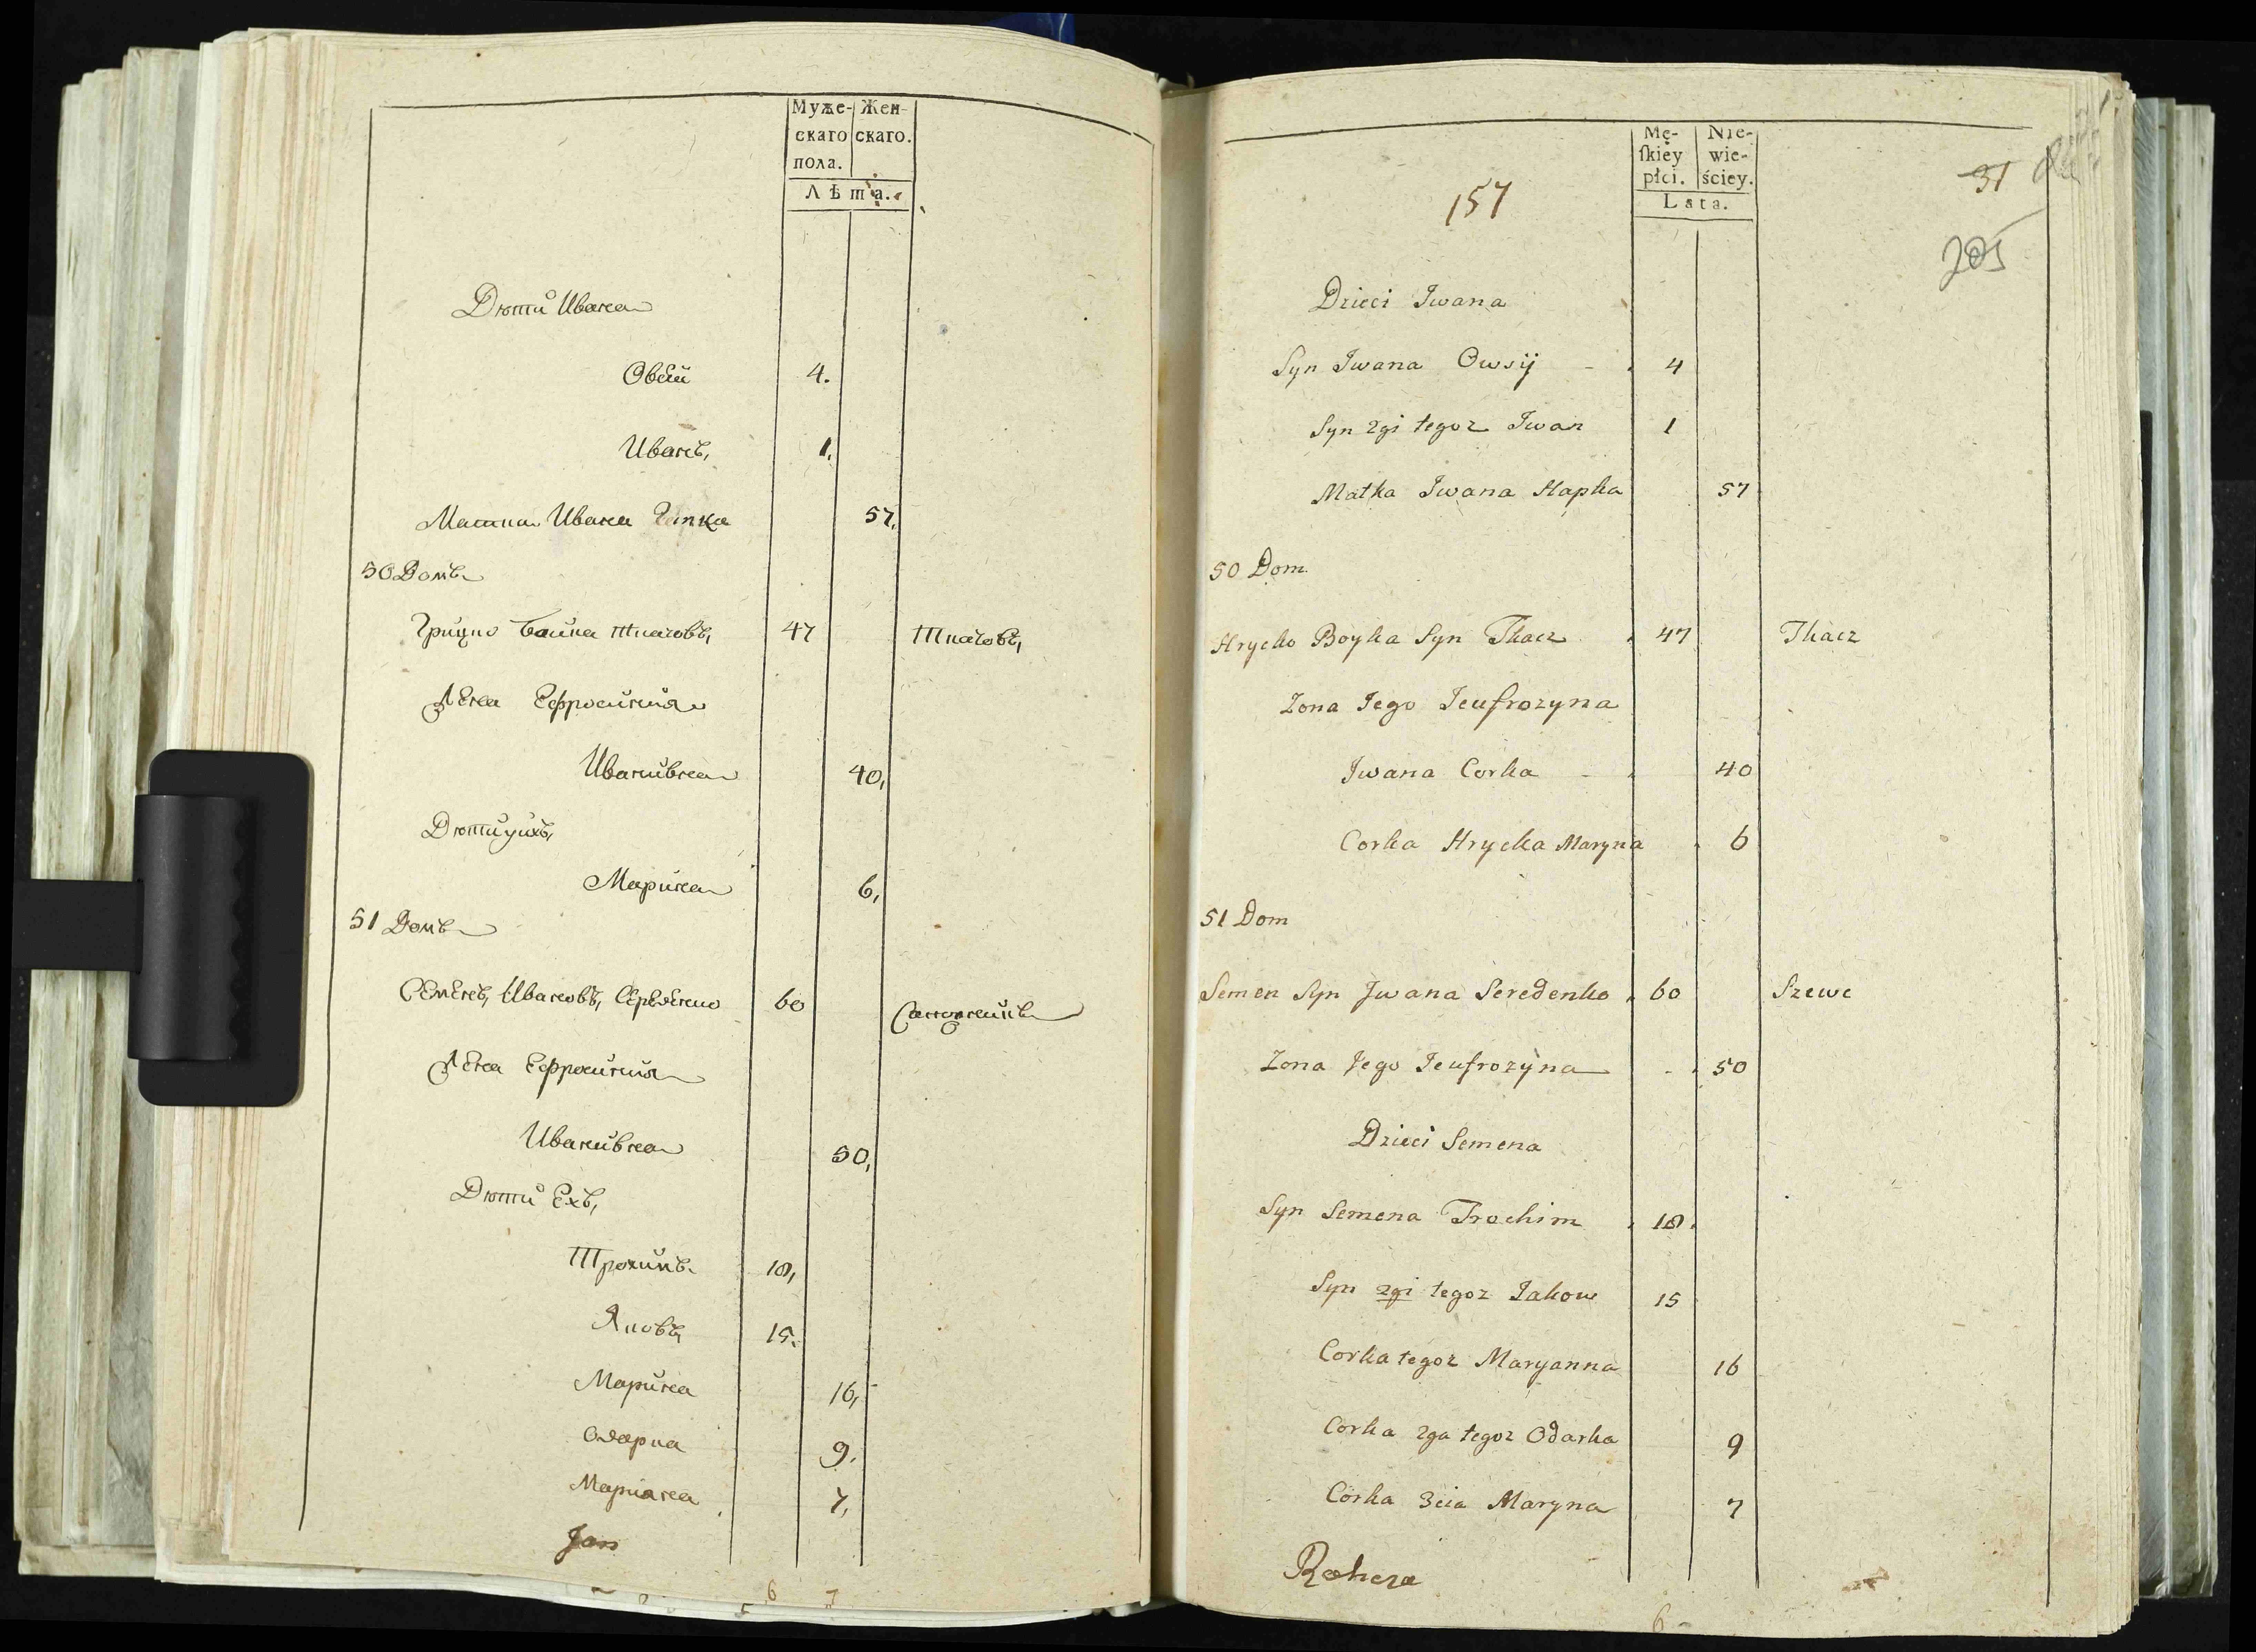 Муже- Жен-
скаго скаго.
пола.
Лѣта.
Дѣти Ивана
Овсій 4.
Иванъ, 1.
Матка Ивана Гапка 57.
50 Домъ
Грицко Бойка Ткачовъ, 47 Ткачовъ,
Жена Ефросинія
Иванивна 40,
Дѣти ихъ,
Марина 6,
51 Домъ
Семенъ, Ивановъ, Середенко 60
Жена Ефросинія
Иванивна 50,
Дѣти Ехъ,
Трохимъ 18,
Яковъ, 15.
Марина 16,
Одарка 9.
Мариана 7,
Jan
Mę- Nie-
ſkiey wie-
płci. ściey.
Lata.
157
31
205
Dzieci Iwana
Syn Iwana Owsij 4
Syn 2gi tegoz Iwan 1
Matka Iwana Hapka 57
50 Dom
Hrycko Boyka Syn Tkacz 47 Tkacz
Zona Iego Ieufrozyna
Iwana Corka 40
Corka Hrycka Maryna 6
51 Dom
Semen Syn Jwana Seredenko 60 Szewc
Zona Jego Ieufrozyna 50
Dzieci Semena
Syn Semena Trochim 18.
Syn 2gi tegoz Iakow 15
Corka tegoz Maryanna 16
Corka 2ga tegoz Odarka 9
Corka 3cia Maryna 7